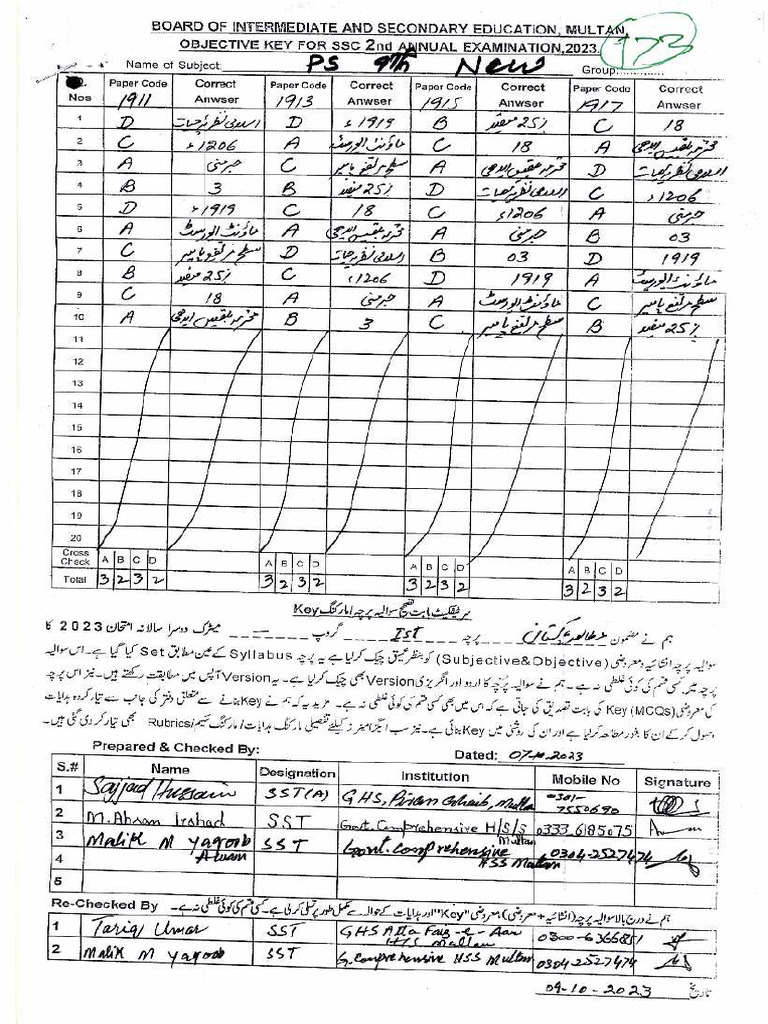 BOARD OF INTERMEDIATE AND SECONDARY EDUCATION, MULTAN,
OBJECTIVE KEY FOR SSC 2nd ANNUAL EXAMINATION, 2023.
173
Name of Subject: PS 9th New Group:............
Nos Paper Code 1911 Correct Anwser Paper Code 1913 Correct Anwser Paper Code 1915 Correct Anwser Paper Code 1917 Correct Anwser
1 D اسلامی نظریہ حیات D 1919ء B 25٪ فیصد C 18
2 C 1206ء A ماؤنٹ ایورسٹ C 18 A محترمہ بلقیس ایدھی
3 A جرمنی C سطح مرتفع پامیر A محترمہ بلقیس ایدھی D اسلامی نظریہ حیات
4 B 3 B 25٪ فیصد D اسلامی نظریہ حیات C 1206ء
5 D 1919ء C 18 C 1206ء A جرمنی
6 A ماؤنٹ ایورسٹ A محترمہ بلقیس ایدھی A جرمنی B 03
7 C سطح مرتفع پامیر D اسلامی نظریہ حیات B 03 D 1919
8 B 25٪ فیصد C 1206ء D 1919 A ماؤنٹ ایورسٹ
9 C 18 A جرمنی A ماؤنٹ ایورسٹ C سطح مرتفع پامیر
10 A محترمہ بلقیس ایدھی B 3 C سطح مرتفع پامیر B 25٪ فیصد
11
12
13
14
15
16
17
18
19
20
Cross Check A B C D A B C D A B C D A B C D
Total 3 2 3 2 3 2 3 2 3 2 3 2 3 2 3 2
سرٹیفکیٹ بابت تصحیح سوالیہ پرچہ / مارکنگ Key
ہم نے مضمون مطالعہ پاکستان پرچہ Ist گروپ ــ میٹرک دوسرا سالانہ امتحان 2023 کا
سوالیہ پرچہ انشائیہ و معروضی (Subjective&Objective) کو بنظر عمیق چیک کر لیا ہے یہ پرچہ Syllabus کے عین مطابق Set کیا گیا ہے۔ اس سوالیہ
پرچہ میں کسی قسم کی کوئی غلطی نہ ہے۔ ہم نے سوالیہ پرچہ کا اردو اور انگریزی Version بھی چیک کر لیا ہے۔ یہ Version آپس میں مطابقت رکھتے ہیں۔ نیز اس پرچہ
کی معروضی (MCQs) Key کی بابت تصدیق کی جاتی ہے کہ اس میں بھی کسی قسم کی کوئی غلطی نہ ہے۔ مزید یہ کہ ہم نے Key بنانے سے متعلق دفتر کی جانب سے تیار کردہ ہدایات
وصول کر کے ان کا بغور مطالعہ کر لیا ہے اور ان کی روشنی میں Key بنائی ہے۔ نیز سب ایگزامینرز کیلئے تفصیلی مارکنگ ہدایات / مارکنگ سکیم / Rubrics بھی تیار کر دی گئی ہیں۔
Prepared & Checked By: Dated: 07-10-2023
S.# Name Designation Institution Mobile No Signature
1 Sajjad Hussain SST(A) GHS, Piran Ghaib, Multan 0301-7550690
2 M. Ahsan Irshad SST Govt. Comprehensive H/S/S Multan 0333 6185075
3 Malik M Yaqoob Awan SST Govt. Comprehensive HSS Multan 0304-2527474
4
5
Re-Checked By ہم نے درج بالا سوالیہ پرچہ (انشائیہ + معروضی)، معروضی "Key" اور ہدایات کے حوالہ سے مکمل طور پر تسلی کر لی ہے۔ کسی قسم کی کوئی غلطی نہ ہے۔
1 Tariq Umar SST GHS Atta Faiz-e-Aam H/S Multan 0300-6366851
2 Malik M Yaqoob SST G. Comprehensive HSS Multan 0304 2527474
09-10-2023 تاریخ